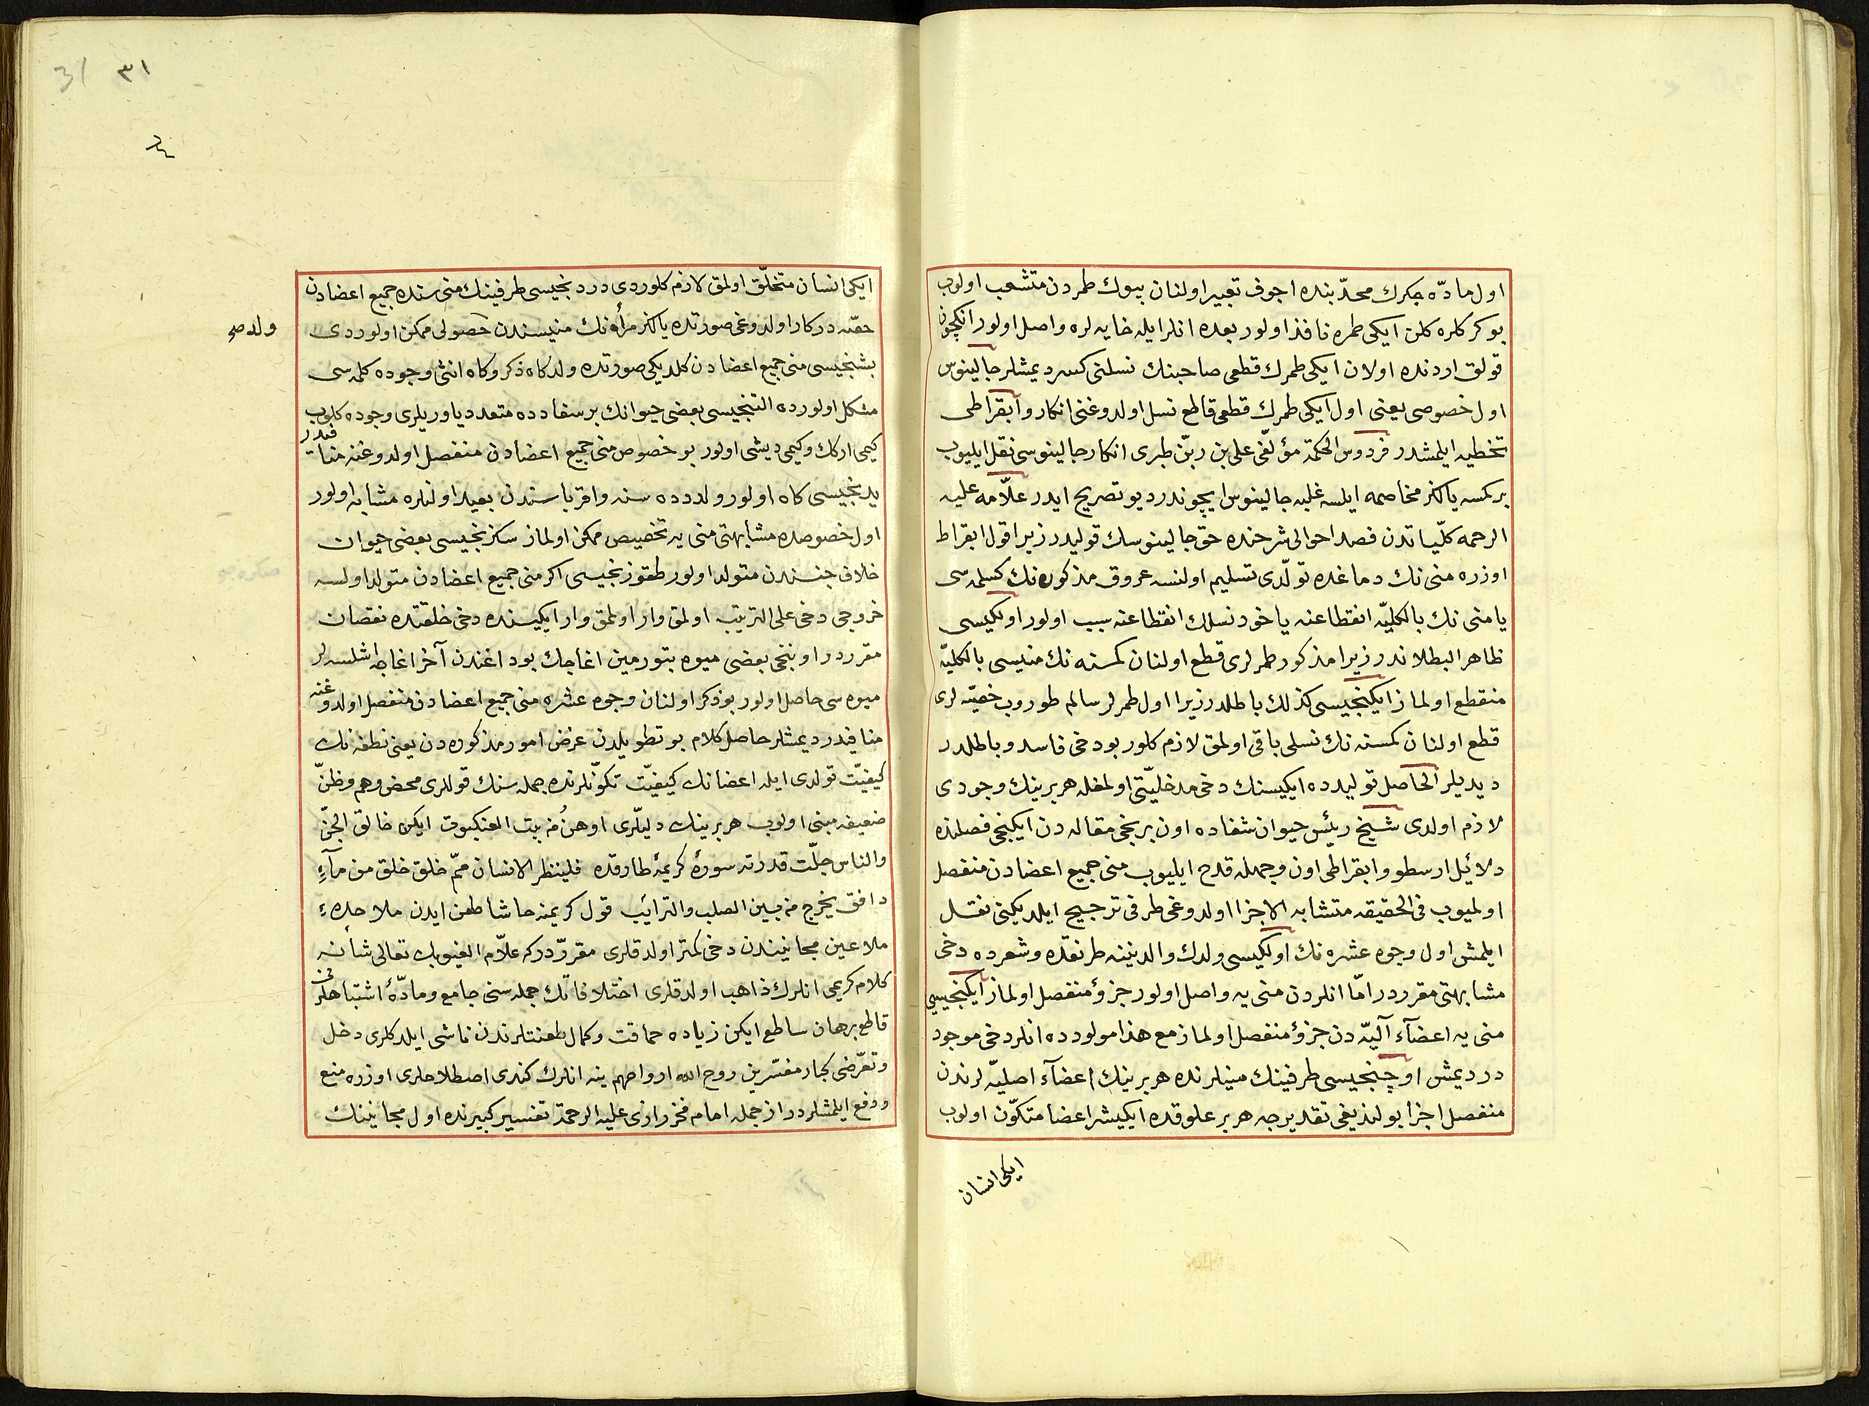 اول مادّه جكرك محدّبنده اجوف تعبير اولنان بيوك طمردن متشعب اولوب
بوكركلره كلن ايكى طمره نافذ اولور بعده انلر ايله خايه لره واصل اولور انكچون
قولق اردنده اولان ايكى طمرك قطعى صاحبنك نسلنى كسر ديمشلر جالينوس
اول خصوصى يعنى اول ايكى طمرك قطعى قاطع نسل اولدوغنى انكار و ابقراطى
تخطيه ايلمشدر فردوس الحكمة مؤلّفى على بن ربّن طبرى انكار جالينوسى نقل ايليوب
بر كمسه يالكز مخاصمه ايلسه غلبه جالينوس ايچوندر ديو تصريح ايدر علاّمه عليه
الرحمه كلّياتدن فصد احوالى شرحنده حق جالينوسك قوليدر زيرا قول ابقراط
اوزره منى نك دماغده تولّدى تسليم اولنسه عروق مذكوره نك كسلمه سى
يا منى نك بالكليّه انقطاعنه يا خود نسلك انقطاعنه سبب اولور اولكيسى
ظاهر البطلاندر زيرا مذكور طمرلرى قطع اولنان كمسنه نك منيسى بالكليّه
منقطع اولماز ايكنجيسى كذلك باطلدر زيرا اول طمرلر سالم طوروب خصيّه لرى
قطع اولنان كمسنه نك نسلى باقى اولمق لازم كلور بودخى فاسد و باطلدر
ديديلر الحاصل توليدده ايكيسنك دخى مدخليّتى اولمغله هر برينك وجودى
لازم اولدى شيخ رئيس حيوان شفاده اون برنجى مقاله دن ايكنجى فصلنده
دلائل ارسطو و ابقراطى اون وجهله قدح ايليوب منى جميع اعضادن منفصل
اولميوب فى الحقيقه متشابه الاجزا اولدوغى طرفى ترجيح ايلديكنى نقل
ايلمش اول وجوه عشره نك اولكيسى ولدك والديننه طرنقده و شعرده دخى
مشابهتى مقرردر امّا انلردن منى يه واصل اولور جزؤ منفصل اولماز ايكنجيسى
منى يه اعضآء آليّه دن جزؤ منفصل اولماز مع هذا مولودده انلر دخى موجود
در ديمش اوچنجيسى طرفينك منيلرنده هر برينك اعضآء اصليّه لرندن
منفصل اجزا بولنديغى تقديرجه هر بر علوقده ايكيشر اعضا متكوّن اولوب
ايكى انسان
٣١
31
ايكى انسان متخلّق اولمق لازم كلوردى دردنجيسى طرفينك منى سنده جميع اعضادن
حصّه دركار اولدوغى صورتده يالكز مرأه نك منيسندن حصولى ممكن اولوردى
ولد صح
بشنجيسى منى جميع اعضادن كلديكى صورتده ولد كاه ذكر وكاه انثى وجوده كلمه سى
مشكل اولورده التنجيسى بعضى حيوانك بر سفادده متعدد ياوريلرى وجوده كلوب
كيمى اركك وكيمى ديشى اولور بو خصوص منى جميع اعضادن منفصل اولدوغنه منافيدر
يدنجيسى كاه اولور ولد دده سنه واقرباسندن بعيد اولنلره مشابه اولور
اول خصوصده مشابهتى منى يه تخصيص ممكن اولماز سكزنجيسى بعضى حيوان
خلاف جنسندن متولد اولور طقوزنجيسى اكر منى جميع اعضادن متولد اولسه
خروجى دخى على الترتيب اولمق وار اولمق وار ايكيسنده دخى خلقتده نقصان
مقرردر اوننجى بعضى ميوه بتورمين اغاجك بوداغندن آخر اغاجه اشلسه لر
ميوه سى حاصل اولور بو ذكر اولنان وجوه عشره منى جميع اعضادن منفصل اولدوغنه
منافيدر ديمشلر حاصل كلام بو تطويلدن غرض امور مذكوره دن يعنى نطفه نك
كيفيّت تولدى ايله اعضانك كيفيّت تكوّنلرنده جمله سنك قوللرى محض وهم وظنّ
ضعيفه مبنى اولوب هر برينك دليلّرى اوهن من بيت العنكبوت ايكن خالق الجنّ
والناس جلّت قدرته سورۀ كريمۀ طارقده فلينظر الانسان ممّ خلق خلق من مآءٍ
دافق يخرج من بين الصلب والترائب قول كريمنه حاشا طعن ايدن ملاحدۀ
ملاعين مجانيندن دخى كمتر اولدقلرى مقرّردركه علاّم الغيوبك تعالى شانه
كلام كريمى انلرك ذاهب اولدقلرى اختلافاتك جمله سنى جامع ومادّۀ اشتباهلرنى
قاطع برهان ساطع ايكن زياده حماقت وكمال طعنتلرندن ناشى ايلدكلرى دخل
وتعرّضى كبار مفسّرين روح الله ارواحهم ينه انلرك كندى اصطلاحلرى اوزره منع
ودفع ايلمشلردر از جمله امام فخر رازى عليه الرحمة تفسير كبيرنده اول مجانينك